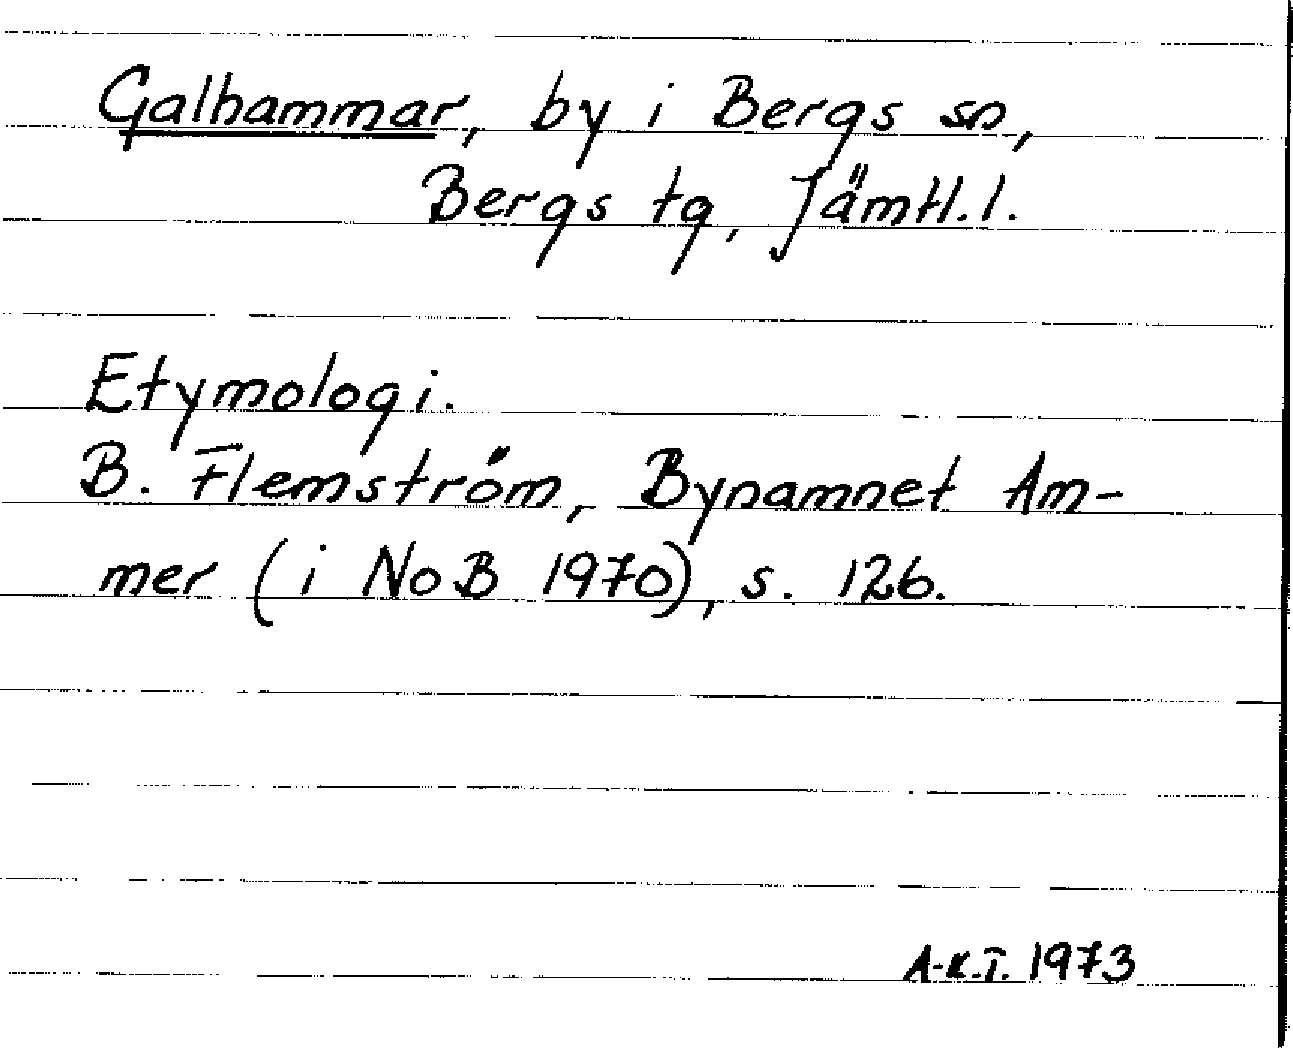 Galhammar, by i Bergs sn,
Bergs tg, Jämtl. l.
Etymologi.
B. Flemström, Bynamnet Am-
mer (i NoB 1970), s. 126.
A-K.T. 1973